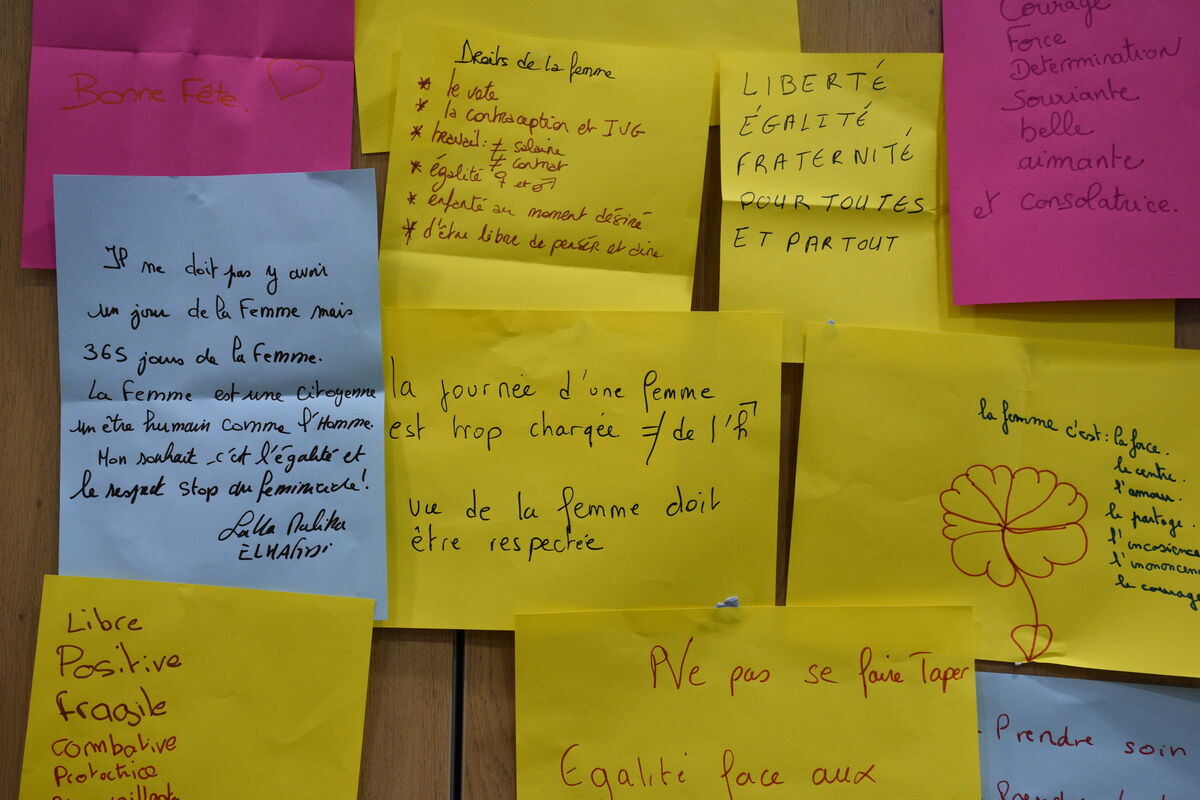 Bonne Fête.
Droits de la femme
* le vote
* la contraception et IVG
* travail : ≠ salaire
≠ contrat
* égalité ♀ et ♂
* enfanté au moment désiré
* d'être libre de penser et dire
LIBERTÉ
ÉGALITÉ
FRATERNITÉ
POUR TOUTES
ET PARTOUT
Courage
Force
Determination
Souriante
belle
aimante
et consolatrice.
Il ne doit pas y avoir
un jour de la Femme mais
365 jours de la Femme.
La Femme est une Citoyenne
un être humain comme l'Homme.
Mon souhait c'est l'égalité et
le respect Stop du feminicide !
Lalla Malika
la journée d'une femme
est trop chargée ≠ de l'h
vie de la femme doit
être respectée
la femme c'est : la force.
le centre.
l'amour.
le partage.
le courage
Libre
Positive
fragile
combative
Protectrice
Ne pas se faire Taper
Egalité face aux
- Prendre soin